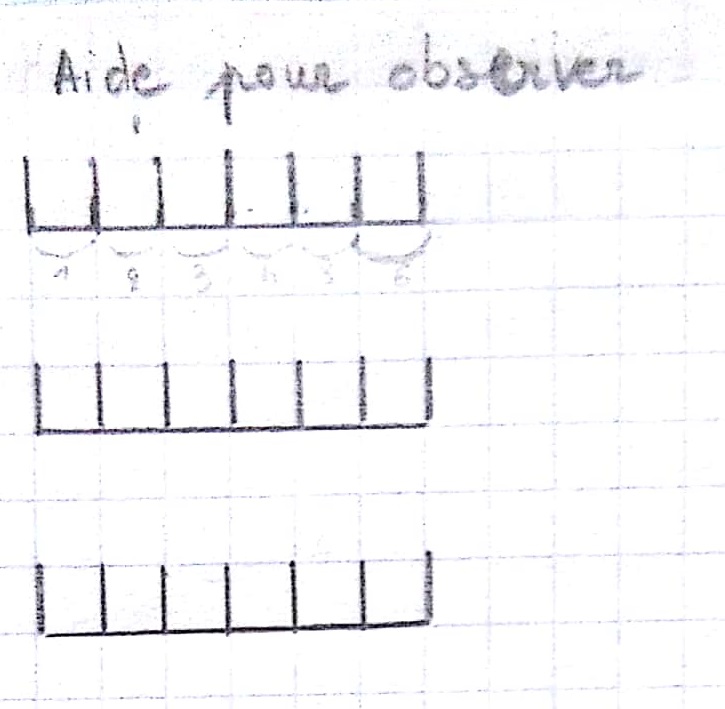 Aide pour observer
1 2 3 4 5 6